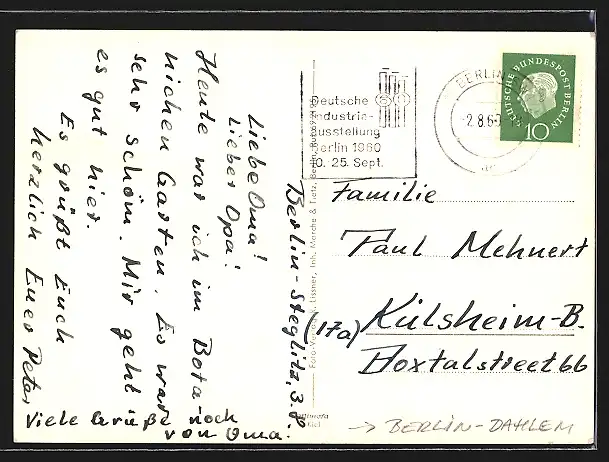 Berlin-Steglitz, 3.8.
Liebe Oma!
Lieber Opa!
Heute war ich im Bota-
nichen Garten. Es war
sehr schön. Mir geht
es gut hier.
Es grüßt Euch
herzlich Euer Peter
Viele Grüße noch
von Oma.
Deutsche
Industrie-
ausstellung
Berlin 1960
10.-25. Sept.
BERLIN
-2.8.60
DEUTSCHE BUNDESPOST BERLIN
10
Familie
Paul Mehnert
(17a) Külsheim-B.
Boxtalstreet 66
→ BERLIN-DAHLEM